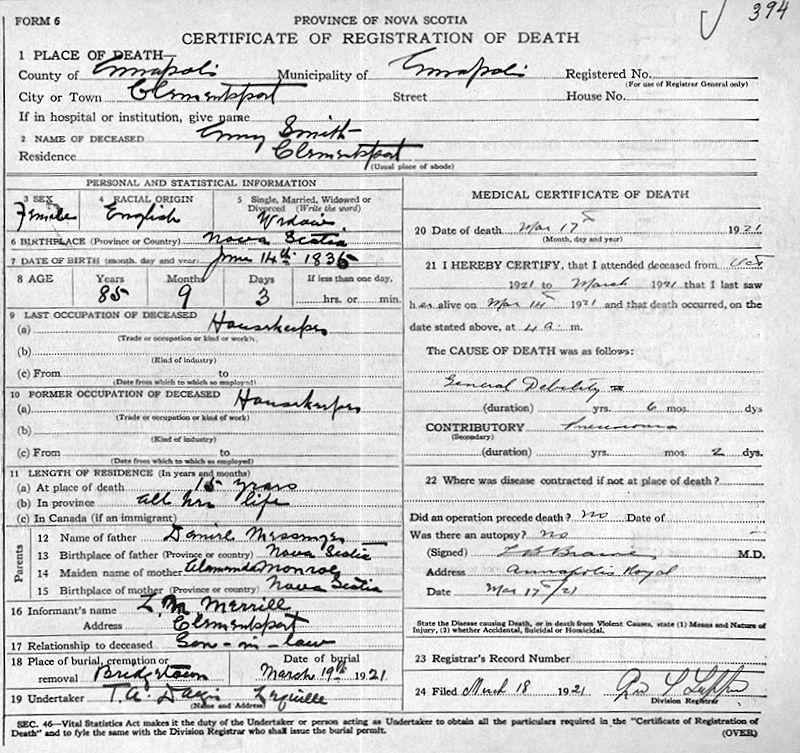 394
FORM 6
PROVINCE OF NOVA SCOTIA
CERTIFICATE OF REGISTRATION OF DEATH
1 PLACE OF DEATH—
County of Annapolis Municipality of Annapolis Registered No.
(For use of Registrar General only)
City or Town Clementsport Street House No.
If in hospital or institution, give name
2 NAME OF DECEASED Smith
Residence Clementsport
(Usual place of abode)
PERSONAL AND STATISTICAL INFORMATION
3 SEX 4 RACIAL ORIGIN 5 Single, Married, Widowed or Divorced (Write the word)
Female English Widow
6 BIRTHPLACE (Province or Country) Nova Scotia
7 DATE OF BIRTH (month, day and year) June 14th 1835
8 AGE Years Months Days If less than one day,
85 9 3 hrs. or min.
9 LAST OCCUPATION OF DECEASED
(a) Housekeeper
(Trade or occupation or kind of work)
(b)
(Kind of industry)
(c) From to
(Date from which to which so employed)
10 FORMER OCCUPATION OF DECEASED
(a) Housekeeper
(Trade or occupation or kind of work)
(b)
(Kind of industry)
(c) From to
(Date from which to which so employed)
11 LENGTH OF RESIDENCE (In years and months)
(a) At place of death 15 years
(b) In province all her life
(c) In Canada (if an immigrant)
Parents
12 Name of father Daniel Messenger
13 Birthplace of father (Province or country) Nova Scotia
14 Maiden name of mother Monroe
15 Birthplace of mother (Province or country) Nova Scotia
16 Informant's name L. M. Merrill
Address Clementsport
17 Relationship to deceased Son-in-law
18 Place of burial, cremation or removal Bridgetown Date of burial March 19th 1921
19 Undertaker T. A. Lequille
(Name and Address)
MEDICAL CERTIFICATE OF DEATH
20 Date of death Mar 17th 1921
(Month, day and year)
21 I HEREBY CERTIFY, that I attended deceased from Oct
1921 to March 1921 that I last saw
her alive on Mar 14th 1921 and that death occurred, on the
date stated above, at 4 a. m.
The CAUSE OF DEATH was as follows:
General Debility
(duration) yrs. 6 mos. dys
CONTRIBUTORY Pneumonia
(Secondary)
(duration) yrs. mos. 2 dys.
22 Where was disease contracted if not at place of death?
Did an operation precede death? no Date of
Was there an autopsy? no
(Signed) L B M.D.
Address Annapolis Royal
Date Mar 17th/21
State the Disease causing Death, or in death from Violent Causes, state (1) Means and Nature of
Injury, (2) whether Accidental, Suicidal or Homicidal.
23 Registrar's Record Number
24 Filed March 18 1921
Division Registrar
SEC. 46—Vital Statistics Act makes it the duty of the Undertaker or person acting as Undertaker to obtain all the particulars required in the "Certificate of Registration of
Death" and to fyle the same with the Division Registrar who shall issue the burial permit. (OVER)